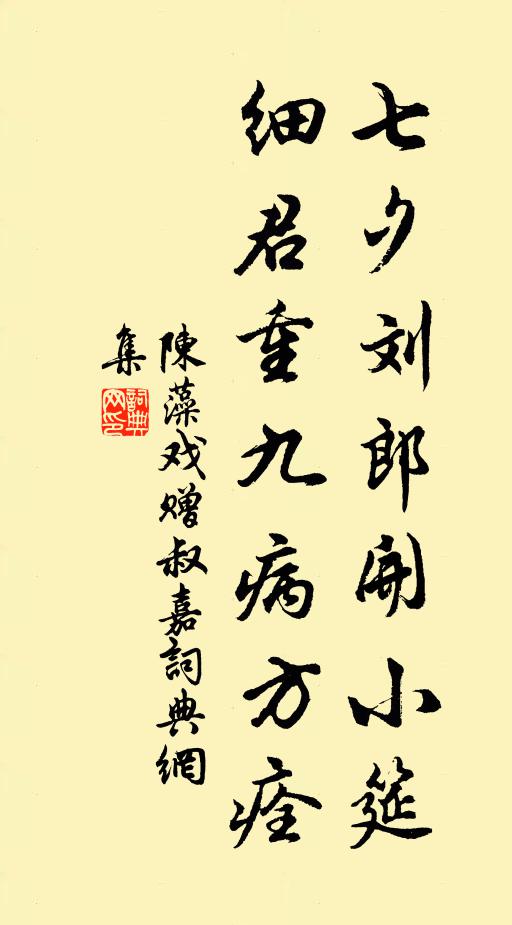 七夕刘郎開小筵
细君重九病方痊
陳藻戏赠叔嘉詞典網
集
詞典
网印